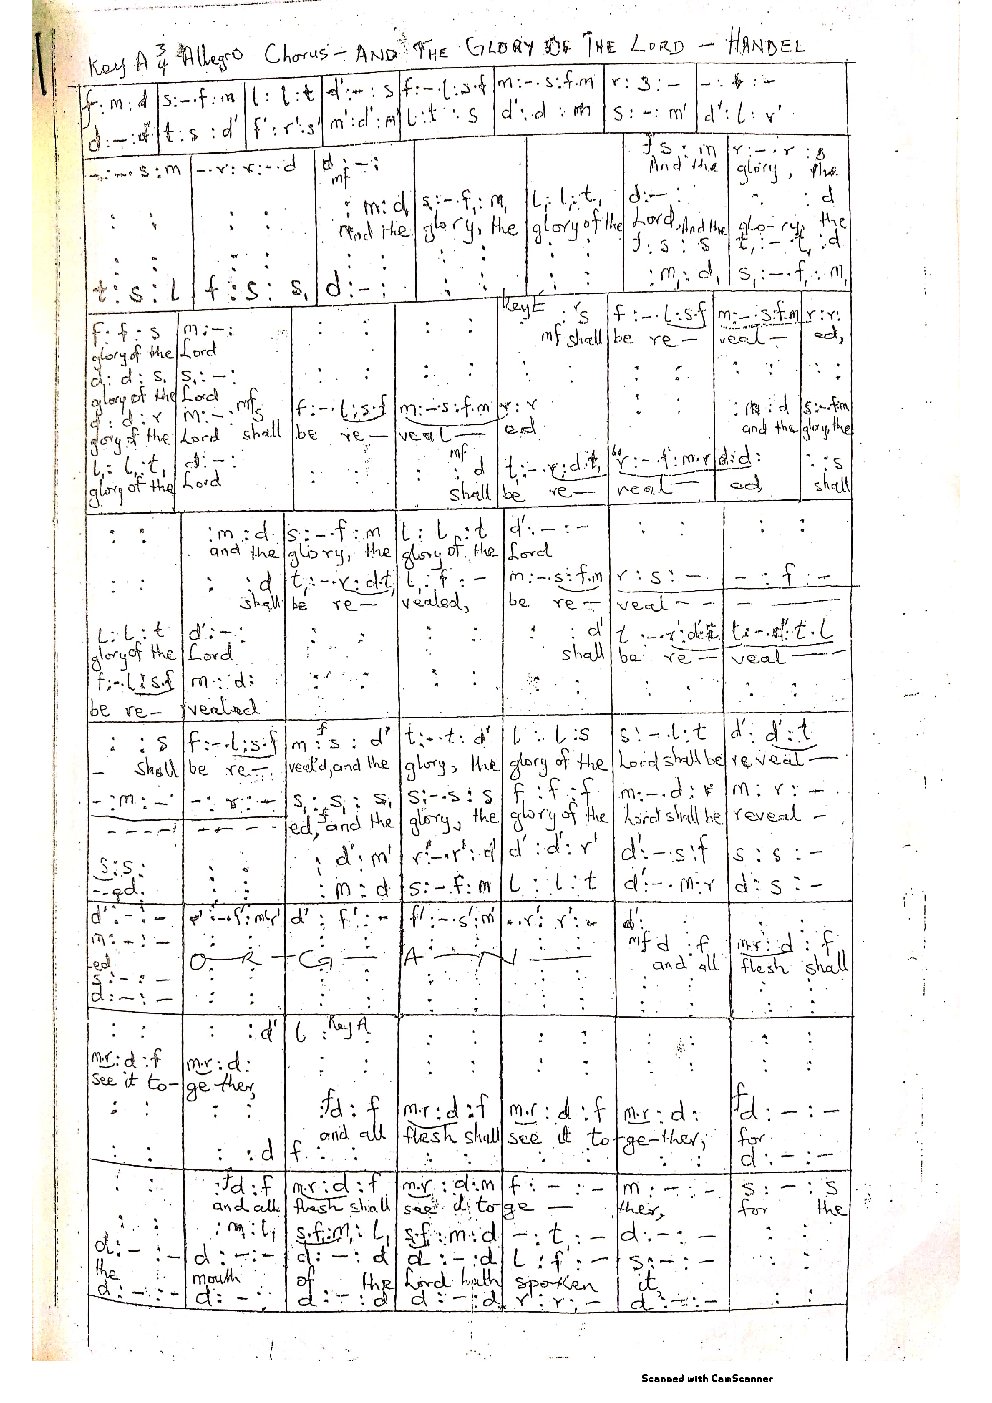 Key A 3/4 Allegro Chorus - AND THE GLORY OF THE LORD - HANDEL
f : m : d | s : - . f : m | l : l : t | d' : - : s | f : - . l : s . f | m : - . s : f . m | r : s : - | - : f : -
t : s : d' | f' : r' : s' | m' : d' : m' | l : t : s | d' : d : m | s : - : m' | d' : l : r'
- : - . s : m | - . r : r : - . d | d : - : | f s : m | r : - . r : s
And the | glory, the
mf
: m : d, | s, : - . f, : m, | l, : l, : t, | d : - : | : d
And the | glory, the | glory of the | Lord, And the | glo-ry, the
f : s : s | t, : - . t, : d
t : s : l | f : s : s, | d : - : | : m, : d, | s, : - . f, : m,
Key E
f : f : s | m : - : | : : s | f : - . l : s . f | m : - . s : f . m | r : r :
glory of the | Lord | mf shall | be re - | veal - | ed,
d : d : s, | s, : - :
glory of the | Lord
d : d : r | m : - : mf s | f : - . l : s . f | m : - . s : f . m | r : r | : m : d | s : - . f : m
glory of the | Lord shall | be re - | veal - | ed | and the | glory, the
l, : l, : t, | d : - : | mf : d | t, : - . r : d . t, | r : - . f : m . r | d : d : | : : s
glory of the | Lord | shall | be re - | veal - | ed, | shall
: : | : m : d | s : - . f : m | l : l : t | d' : - : -
and the | glory, the | glory of the | Lord
: : | : : d | t, : - . r : d . t, | l, : f : - | m : - . s : f . m | r : s : - | - : f : -
shall | be re - | vealed, | be re - | veal - -
l : l : t | d' : - : | : : d'
glory of the | Lord | shall | be re - | veal
f : - . l : s . f | m : d :
be re - | vealed
: : s | f : - . l : s . f | m : s : d' | t : - . t : d' | l : l : s | s : - . l : t | d' : d' : t
- shall | be re - | veal'd, and the | glory, the | glory of the | Lord shall be | reveal -
- : m : - | - : r : - | s, : s, : s, | s : - . s : s | f : f : f | m : - . d : r | m : r : -
ed, and the | glory, the | glory of the | Lord shall be | reveal -
s : s : | : d' : m' | r' : - . r' : d' | d' : d' : r' | d' : - . s : f | s : s : -
- - ed. | : m : d | s : - . f : m | l : l : t | d' : - . m : r | d : s : -
d' : - : - | d' : f' : - | f' : - . s' : m' | - . r' : r' : - | d' :
m : - : - | mf d : f | m.r : d : f
ed | O - R - G - A - N | and all | flesh shall
s : - : -
d : - : -
: : | : : d' | l : Key A
m.r : d : f | m.r : d :
see it to - | ge ther,
: : | : : | f d : f | m.r : d : f | m.r : d : f | m.r : d : | f d : - : -
and all | flesh shall | see it to - | ge-ther, | for
: : | : : d | f : | d : - : -
: : | f d : f | m.r : d : f | m.r : d : m | f : - : - | m : - : - | s : - : s
and all | flesh shall | see it to | ge - | ther, | for the
: : | : m : l, | s.f : m : l, | s.f : m : d | - : t : - | d : - : -
d : - : - | d : - : - | d : - : d | d : - : d | l : f : - | s : - : -
the | mouth | of the | Lord hath | spoken | it,
d : - : - | d : - : | d : - : d | d : - : d | r : r : - | d : - : -
Scanned with CamScanner